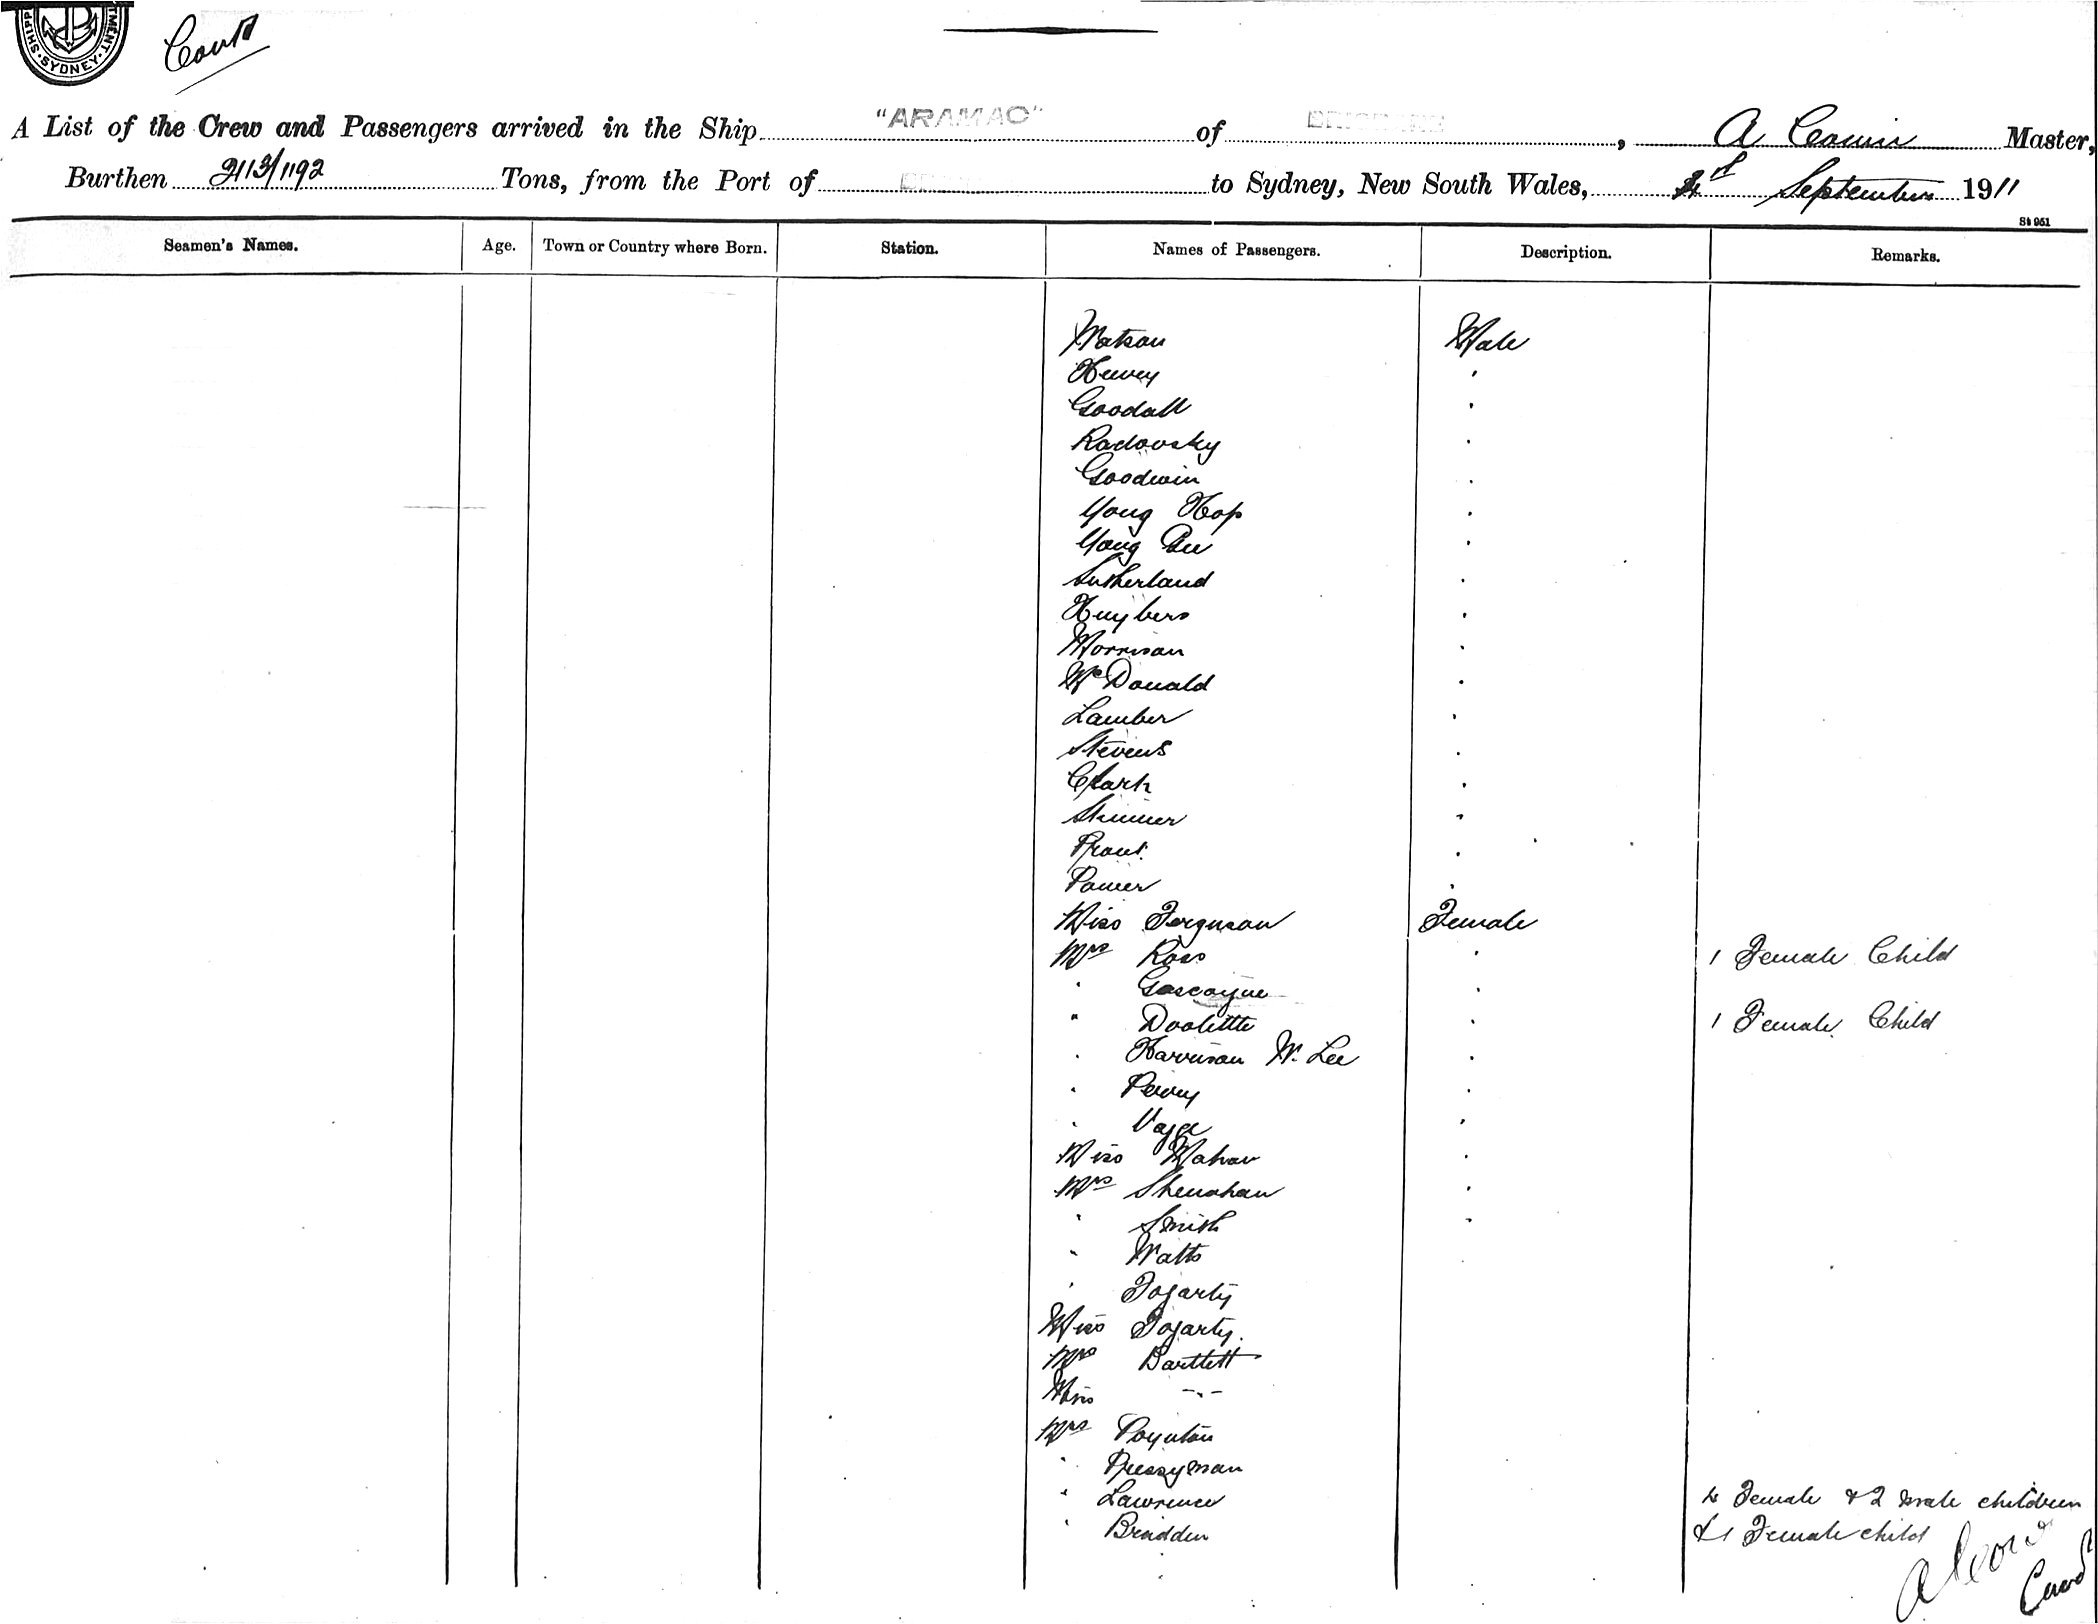 SHIPP TMENT
SYDNEY
Contd
A List of the Crew and Passengers arrived in the Ship "ARAMAC" of BRISBANE, A Master,
Burthen 2113/1192 Tons, from the Port of to Sydney, New South Wales, September 1911
St 951
Seamen's Names. Age. Town or Country where Born. Station. Names of Passengers. Description. Remarks.
Watson Male
Hewey "
Goodall "
Radovsky "
Goodwin "
Yong Hop "
Yong "
Sutherland "
Huybers "
Morrison "
McDonald "
Lamber "
Stevens "
Clark "
Skinner "
Prout "
Power "
Miss Ferguson Female
Mrs Ross " 1 Female Child
" Gascoyne "
" Doolette " 1 Female Child
" Harrison W. Lee "
" Perry "
" "
Miss Mahon "
Mrs Shenahan "
" Smith "
" Watts
" Fogarty
Miss Fogarty.
Mrs Bartlett
Miss -"-
Mrs Poynton
" Pressyman
" Lawrence 4 Female & 2 male children
" Bredden & 1 Female child